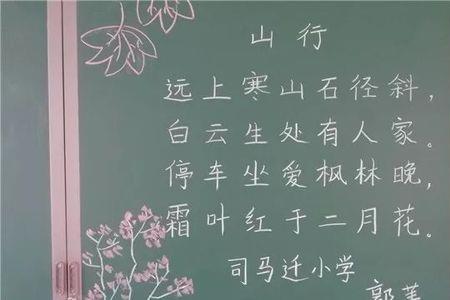 山行
远上寒山石径斜，
白云生处有人家。
停车坐爱枫林晚，
霜叶红于二月花。
司马迁小学
郭